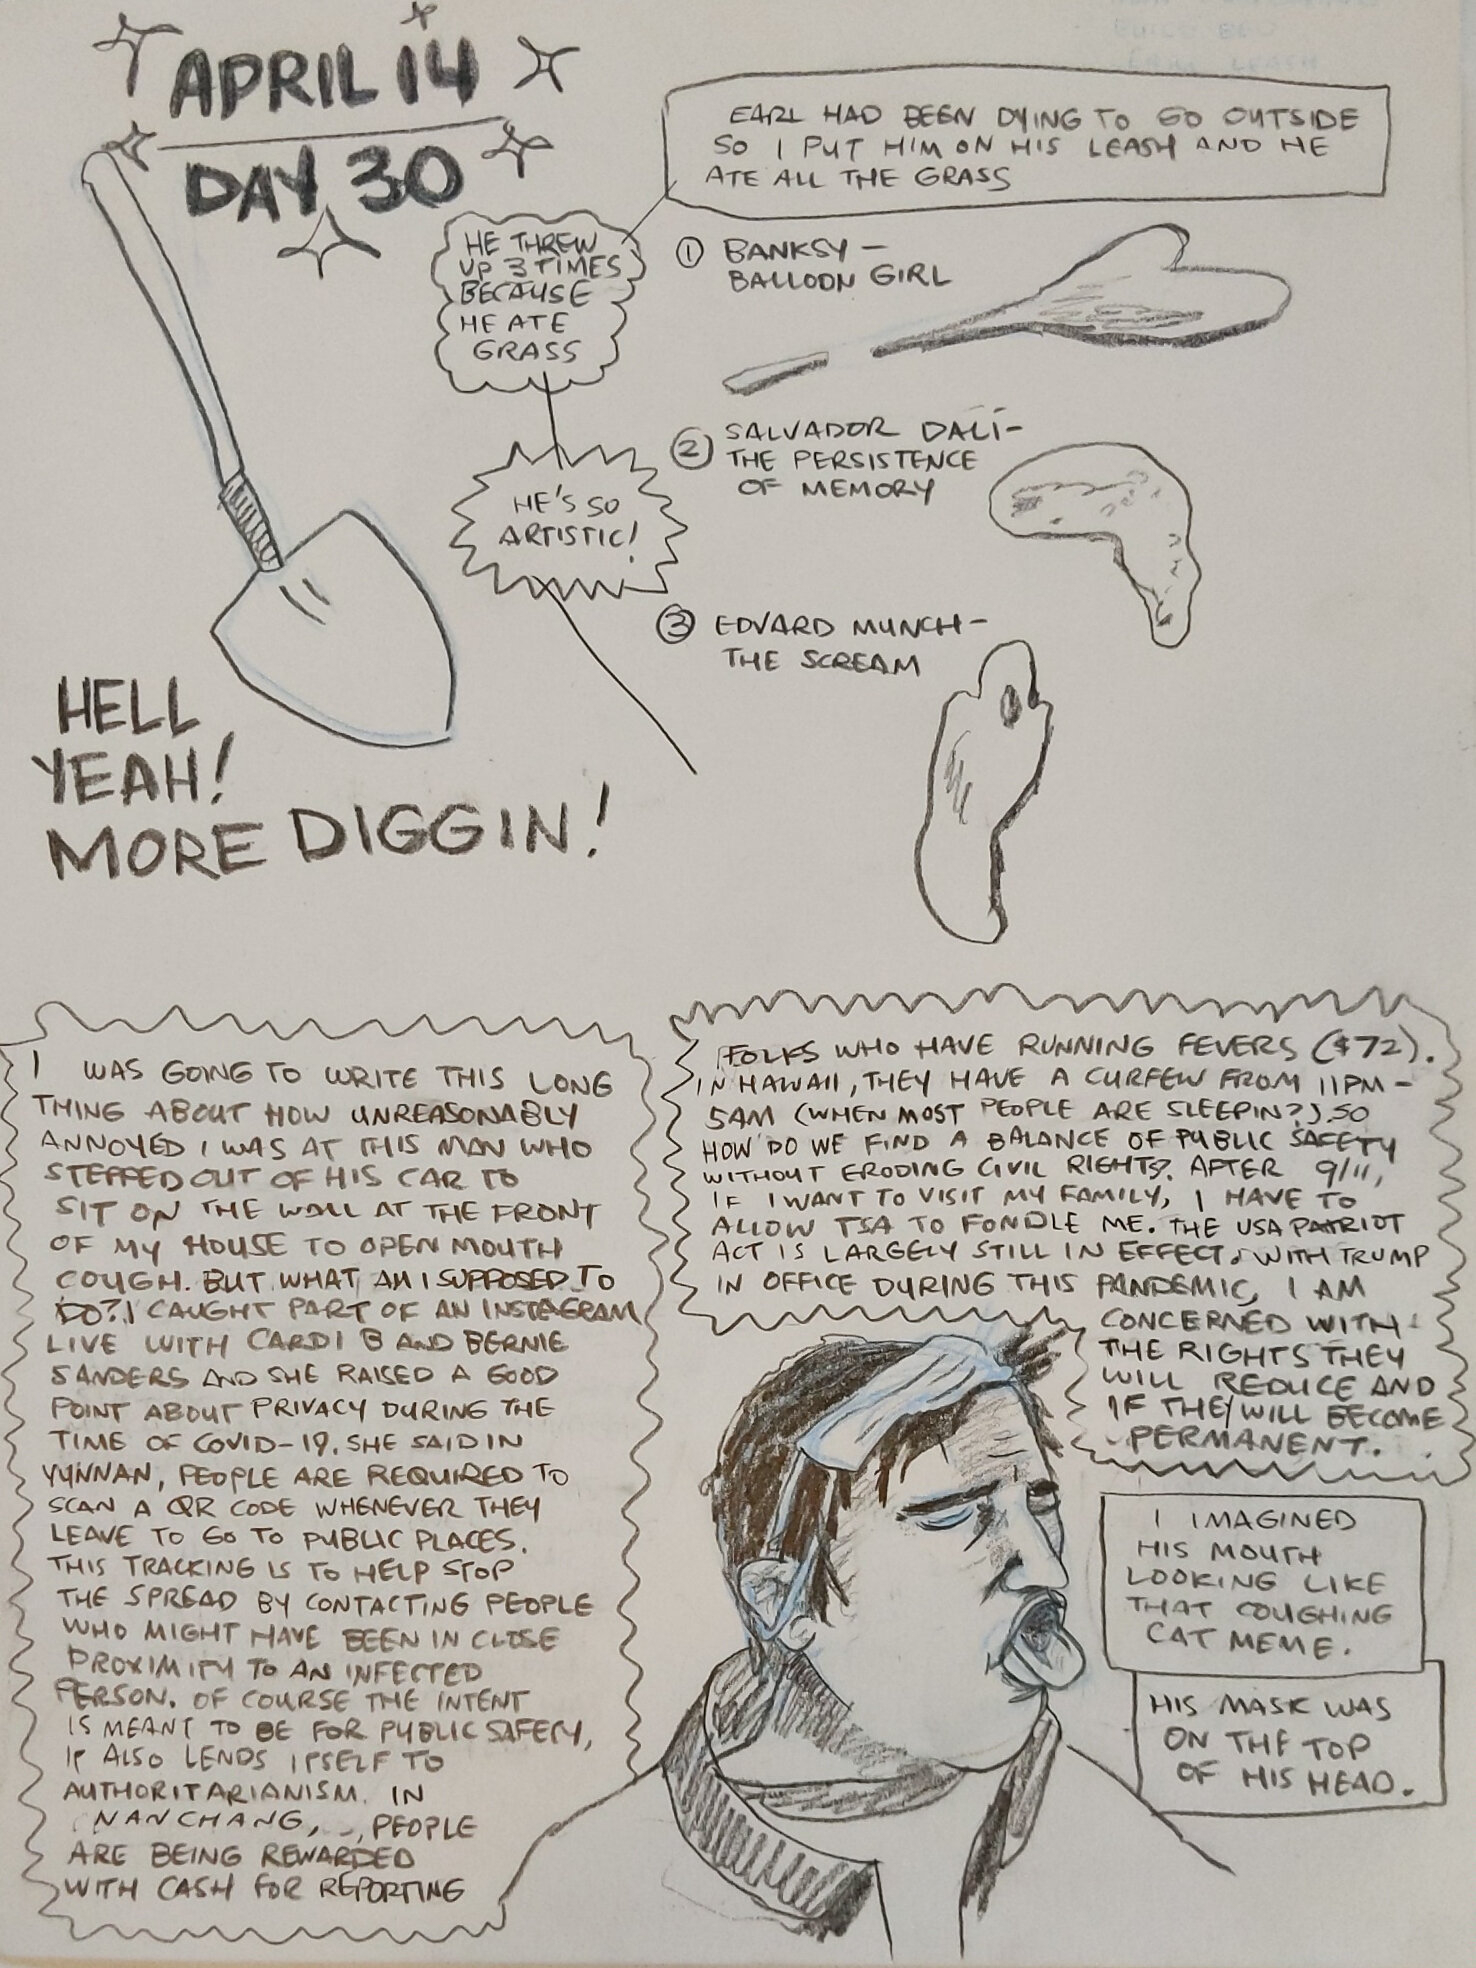 APRIL 14
DAY 30
EARL HAD BEEN DYING TO GO OUTSIDE
SO I PUT HIM ON HIS LEASH AND HE
ATE ALL THE GRASS
HE THREW
UP 3 TIMES
BECAUSE
HE ATE
GRASS
HE'S SO
ARTISTIC!
① BANKSY –
BALLOON GIRL
② SALVADOR DALI –
THE PERSISTENCE
OF MEMORY
③ EDVARD MUNCH –
THE SCREAM
HELL
YEAH!
MORE DIGGIN!
I WAS GOING TO WRITE THIS LONG
THING ABOUT HOW UNREASONABLY
ANNOYED I WAS AT THIS MAN WHO
STEPPED OUT OF HIS CAR TO
SIT ON THE WALL AT THE FRONT
OF MY HOUSE TO OPEN MOUTH
COUGH. BUT WHAT AM I SUPPOSED TO
DO? I CAUGHT PART OF AN INSTAGRAM
LIVE WITH CARDI B AND BERNIE
SANDERS AND SHE RAISED A GOOD
POINT ABOUT PRIVACY DURING THE
TIME OF COVID-19. SHE SAID IN
YUNNAN, PEOPLE ARE REQUIRED TO
SCAN A QR CODE WHENEVER THEY
LEAVE TO GO TO PUBLIC PLACES.
THIS TRACKING IS TO HELP STOP
THE SPREAD BY CONTACTING PEOPLE
WHO MIGHT HAVE BEEN IN CLOSE
PROXIMITY TO AN INFECTED
PERSON. OF COURSE THE INTENT
IS MEANT TO BE FOR PUBLIC SAFETY,
IT ALSO LENDS ITSELF TO
AUTHORITARIANISM. IN
NANCHANG, PEOPLE
ARE BEING REWARDED
WITH CASH FOR REPORTING
FOLKS WHO HAVE RUNNING FEVERS ($72).
IN HAWAII, THEY HAVE A CURFEW FROM 11PM –
5AM (WHEN MOST PEOPLE ARE SLEEPIN?). SO
HOW DO WE FIND A BALANCE OF PUBLIC SAFETY
WITHOUT ERODING CIVIL RIGHTS? AFTER 9/11,
IF I WANT TO VISIT MY FAMILY, I HAVE TO
ALLOW TSA TO FONDLE ME. THE USA PATRIOT
ACT IS LARGELY STILL IN EFFECT. WITH TRUMP
IN OFFICE DURING THIS PANDEMIC, I AM
CONCERNED WITH
THE RIGHTS THEY
WILL REDUCE AND
IF THEY WILL BECOME
PERMANENT.
I IMAGINED
HIS MOUTH
LOOKING LIKE
THAT COUGHING
CAT MEME.
HIS MASK WAS
ON THE TOP
OF HIS HEAD.